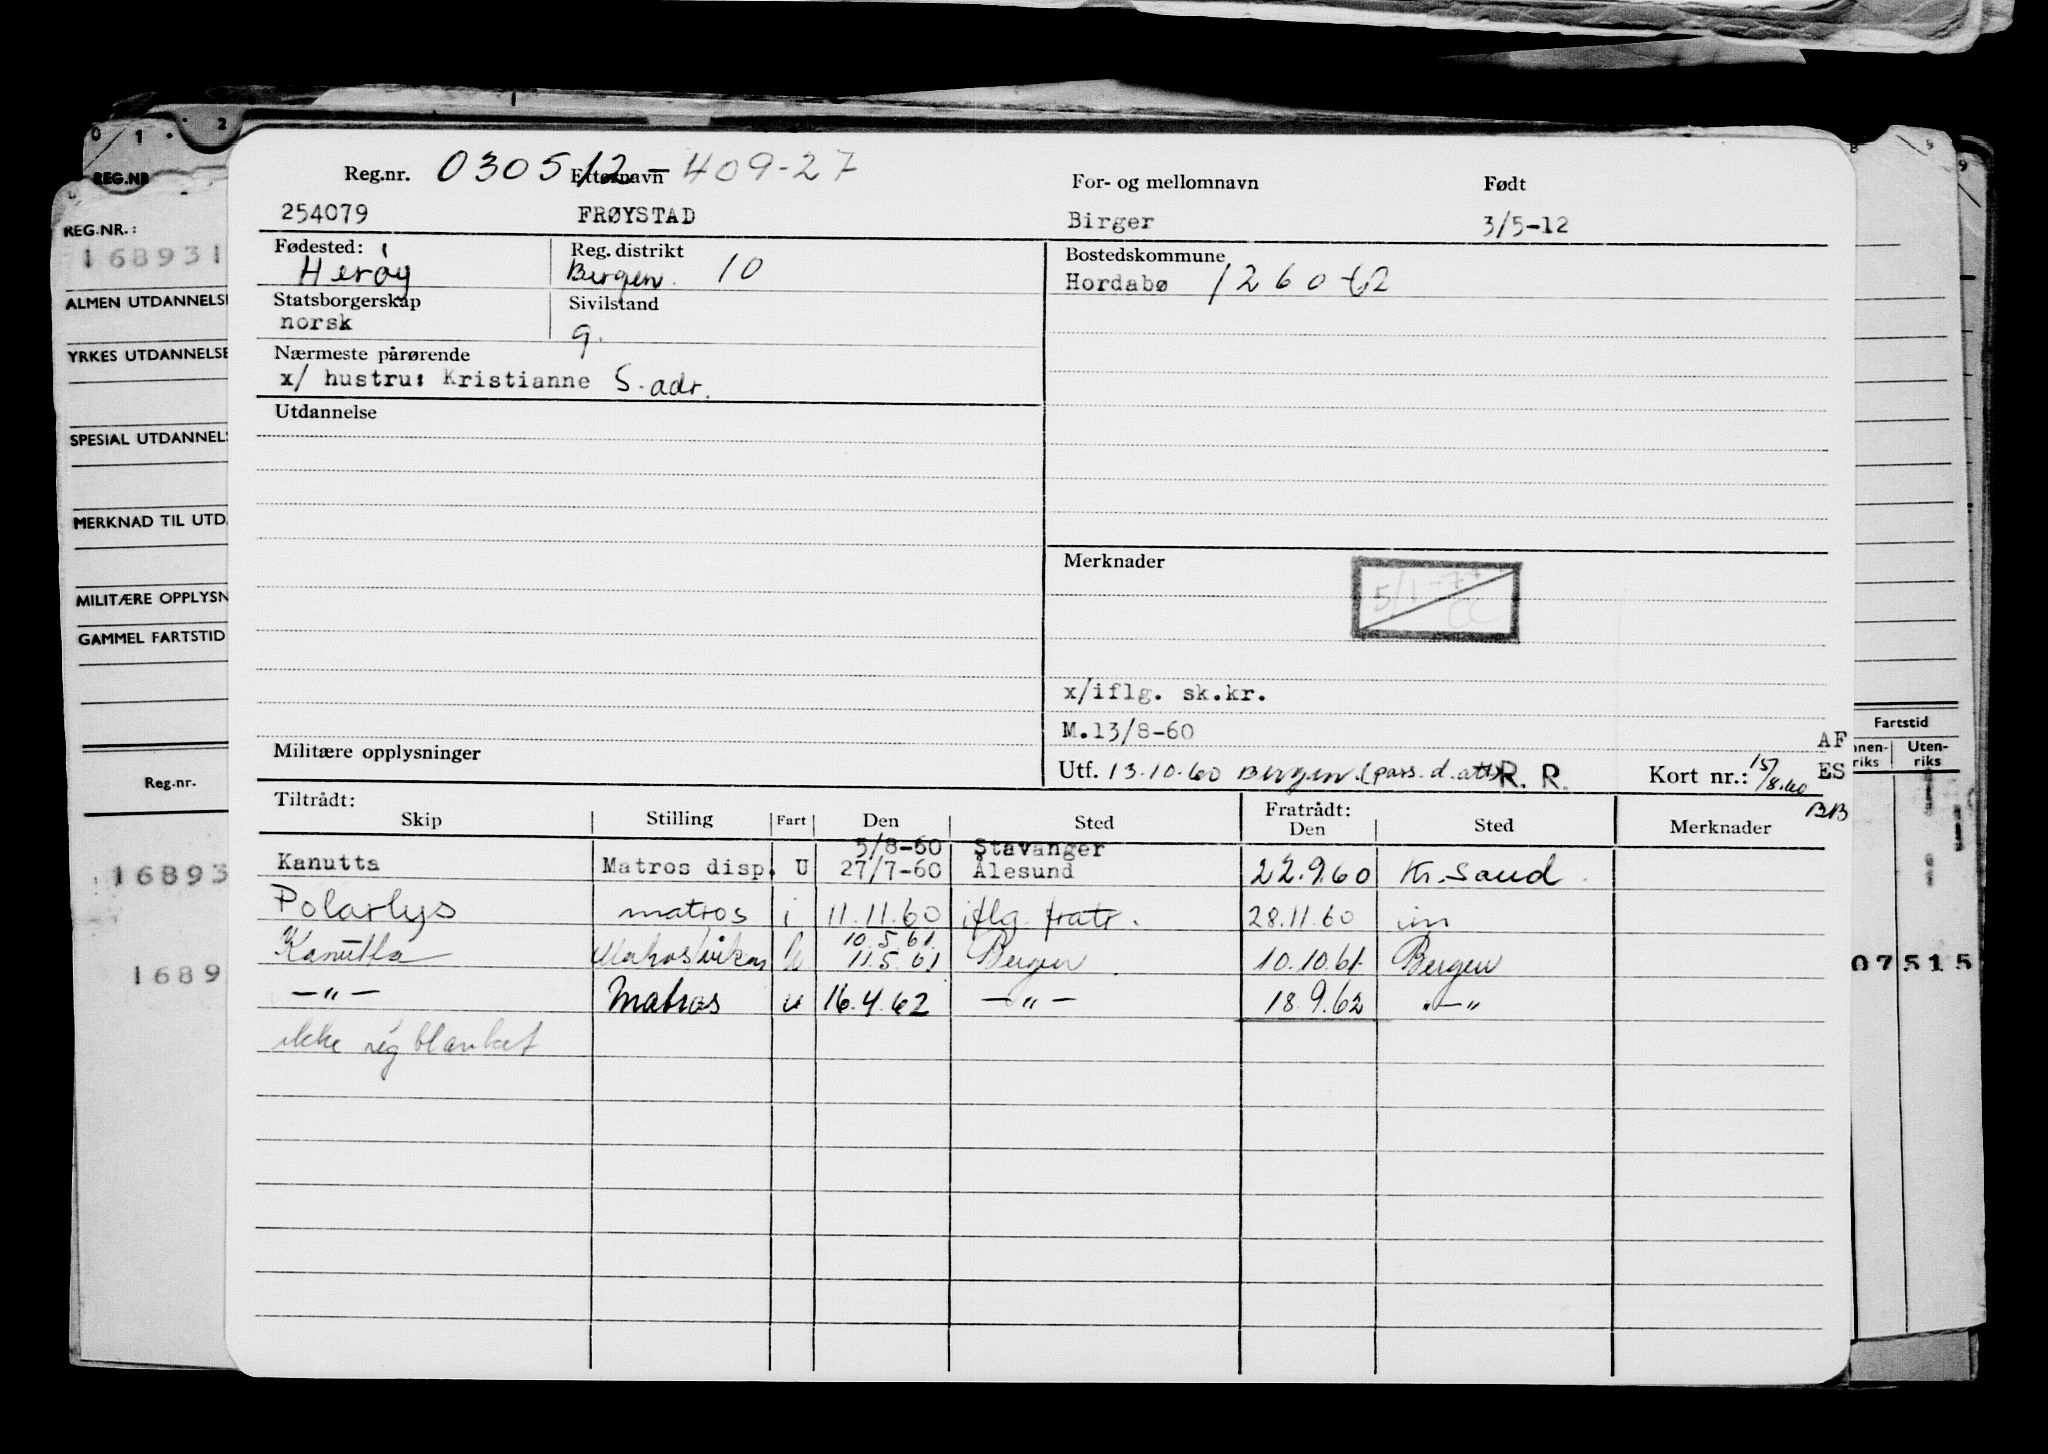 0 1 2
REG.NR
REG.NR.:
168931
ALMEN UTDANNELSE
YRKES UTDANNELSE
SPESIAL UTDANNELS
MERKNAD TIL UTD.
MILITÆRE OPPLYSN
GAMMEL FARTSTID
Reg.nr.
16893
1689
Reg.nr. 030512-409-27 Etternavn For- og mellomnavn Født
254079 FRØYSTAD Birger 3/5-12
Fødested: Reg. distrikt Bostedskommune
Herøy Bergen. 10 Hordabø 1260-62
Statsborgerskap Sivilstand
norsk g.
Nærmeste pårørende
x/ hustru: Kristianne S. adr.
Utdannelse
Merknader
5/1-77
CC
x/iflg. sk.kr.
M.13/8-60
Militære opplysninger
Utf. 13.10.60 Bergen. (pass. d. att) R. R. Kort nr.: 15/8.60
AF
ES
BB
Tiltrådt: Fratrådt:
Skip Stilling Fart Den Sted Den Sted Merknader
5/8-60 Stavanger
Kanutta Matros disp. U 27/7-60 Ålesund 22.9.60 Kr.Sand
Polarlys matros i 11.11.60 iflg. fratr. 28.11.60 im
10.5.61
Kanutta Matros vikar u 11.5.61 Bergen 10.10.61 Bergen
—"— Matros u 16.4.62 —"— 18.9.62 "—"
ikke reg blanket
Fartstid
nnen-
riks
Uten-
riks
07515